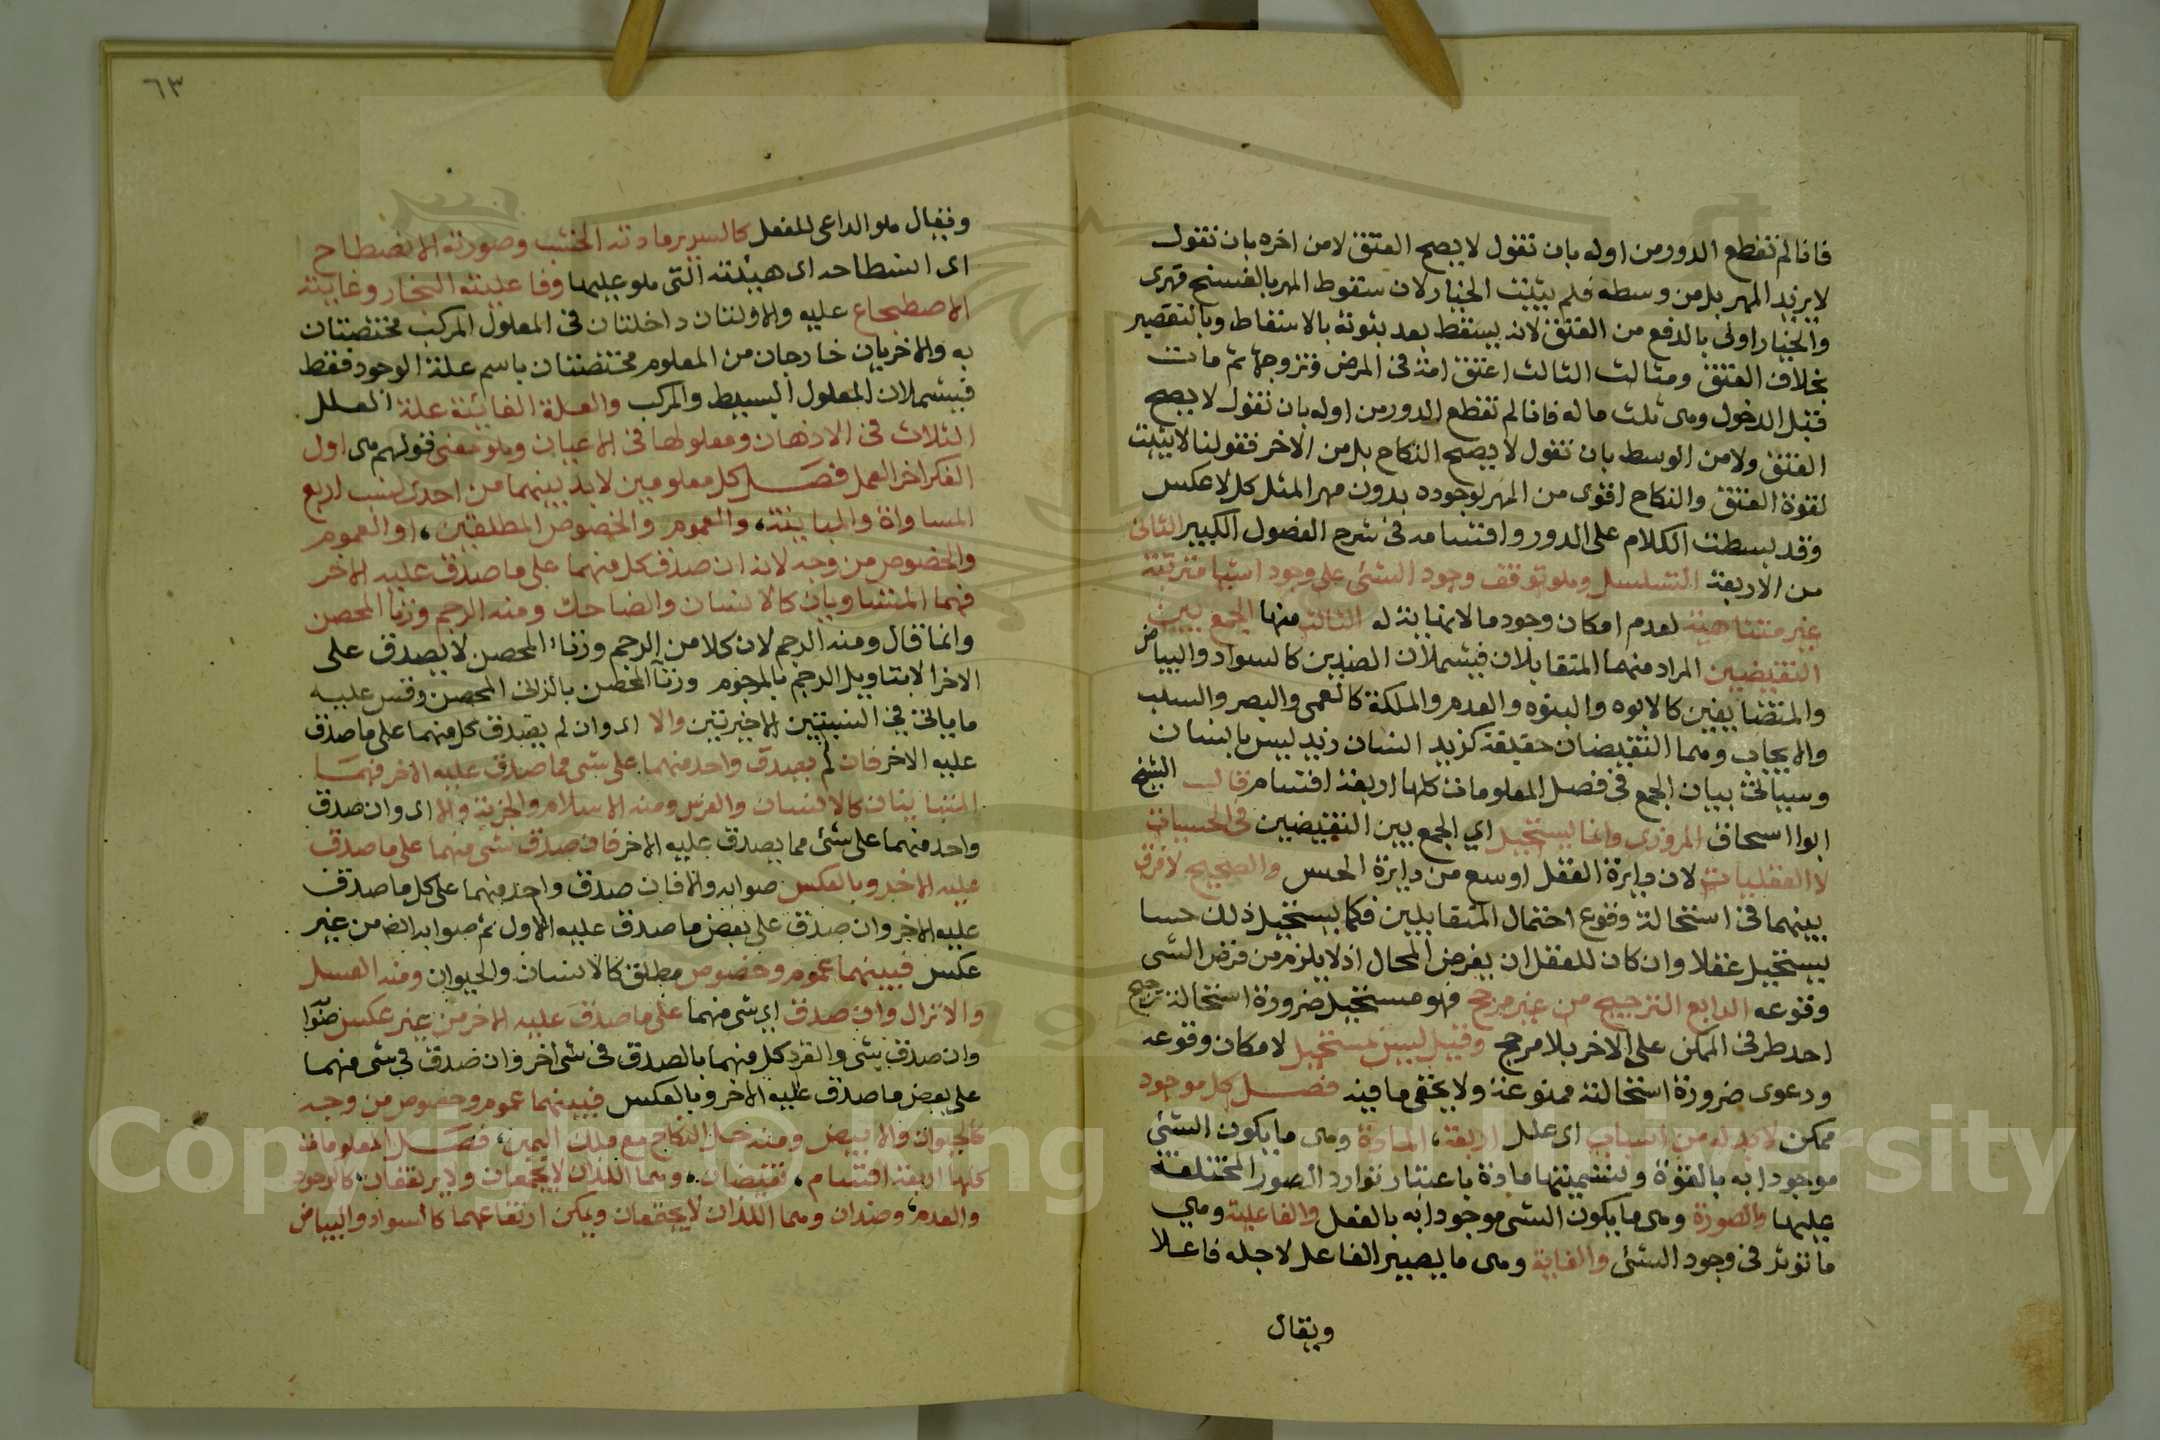 فانا لم نقطع الدور من اوله بان نقول لا يصح العتق لا من اخره بان نقول
لا يرتد المهر بل من وسطه فلم يثبت الخيار لان سقوط المهر بالفسخ قهرى
والخيار اولى بالدفع من العتق لانه يسقط بعد ثبوته بالاسقاط وبالتقصير
بخلاف العتق ومثالث الثالث اعتق امة فى المرض وتزوجها ثم مات
قبل الدخول وهى ثلث ماله فانا لم نقطع الدور من اوله بان نقول لا يصح
العتق ولا من الوسط بان نقول لا يصح النكاح بل من الاخر فقولنا لا يثبت
لقوة العتق والنكاح اقوى من المهر لوجوده بدون مهر المثل كل لا عكس
وقد بسطت الكلام على الدور واقسامه فى شرح الفصول الكبير الثانى
من الاربعة التسلسل وهو توقف وجود الشئ على وجود اشيا مترتبة
غير متناهية لعدم امكان وجود ما لا نهاية له الثالث منها الجمع بين
النقيضين المراد منهما المتقابلان فيشملان الضدين كالسواد والبياض
والمتضايفين كالابوه والبنوه والعدم والملكة كالعمى والبصر والسلب
والايجاب وهما النقيضان حقيقة كزيد انسان زيد ليس بانسان
وسياتى بيان الجمع فى فصل المعلومات كلها اربعة اقسام قال الشيخ
ابوا اسحاق المروزى وانما يستحيل اي الجمع بين النقيضين فى الحسيات
لا العقليات لان دايرة العقل اوسع من دايرة الحس والصحيح لا فرق
بينهما فى استحالة وقوع احتمال المتقابلين فكما يستحيل ذلك حسا
يستحيل عقلا وان كان للعقل ان يفرض المحال اذ لا يلزم من فرض الشى
وقوعه الرابع الترجيح من غير مرجح فهو مستحيل ضرورة استحالة ترجيح
احد طرفى الممكن على الاخر بلا مرجح وقيل ليس بمستحيل لامكان وقوعه
ودعوى ضرورة استحالته ممنوعة ولا يخفى ما فيه فصل كل موجود
ممكن لابد له من اسباب اى علل اربعة، المادة وهى ما يكون الشئ
موجودا به بالقوة وتسميتها مادة باعتبار توارد الصور المختلفة
عليها والصورة وهى ما يكون الشى موجودا به بالفعل والفاعلية وهي
ما تؤثر فى وجود الشئ والغاية وهى ما يصير الفاعل لاجله فاعلا
ويقال
٦٣
ويقال هو الداعى للفعل كالسرير مادته الخشب وصورته الانضطاح
اى انسطاحه اى هيئته التى هو عليها وفاعليته النجار وغايته
الاضطجاع عليه والاولتان داخلتان فى المعلول المركب مختصتان
به والاخريان خارجان من المعلوم مختصتان باسم علة الوجود فقط
فيشملان المعلول البسيط والمركب والعلة الغائية علة العلل
الثلاث فى الاذهان ومعلولها فى الاعيان وهو معنى قولهم هى اول
الفكر اخر العمل فصل كل معلومين لابد بينهما من احدى نسب اربع
المساواة والمباينة، والعموم والخصوص المطلقين، او العموم
والخصوص من وجه لانه ان صدق كل منهما على ما صدق عليه الاخر
فهما المتساويان كالانسان والضاحك ومنه الرجم وزنا المحصن
وانما قال ومنه الرجم لان كلا من الرجم وزناء المحصن لا يصدق على
الاخر الا بتاويل الرجم بالمرجوم وزنا المحصن بالزانى المحصن وقس عليه
ما ياتى في النسبتين الاخيرتين والا اى وان لم يصدق كل منهما على ما صدق
عليه الاخر فان لم يصدق واحد منهما على شى مما صدق عليه الاخر فهما
المتباينان كالانسان والفرس ومنه الاسلام والجزية والا اى وان صدق
واحد منهما على شئ مما يصدق عليه الاخر فان صدق شى منهما على ما صدق
عليه الاخر وبالعكس صوابه والا فان صدق واحد منهما على كل ما صدق
عليه الاخر وان صدق على بعض ما صدق عليه الاول ثم صوابه ايضا من غير
عكس فبينهما عموم وخصوص مطلق كالانسان والحيوان ومنه الغسل
والانزال وان صدق اي شى منهما على ما صدق عليه الاخر من غير عكس صوا
وان صدق شى وانفرد كل منهما بالصدق فى شى اخر وان صدق في شى منهما
على بعض ما صدق عليه الاخر وبالعكس فبينهما عموم وخصوص من وجه
كالحيوان والابيض ومنه حل النكاح مع ملك اليمين، فصل المعلومات
كلها اربعة اقسام، نقيضان، وهما اللذان لا يجتمعان ولا يرتفعان، كالوجود
والعدم، وضدان وهما اللذان لا يجتمعان ويمكن ارتفاعهما كالسواد والبياض
Copyright © King Saud University